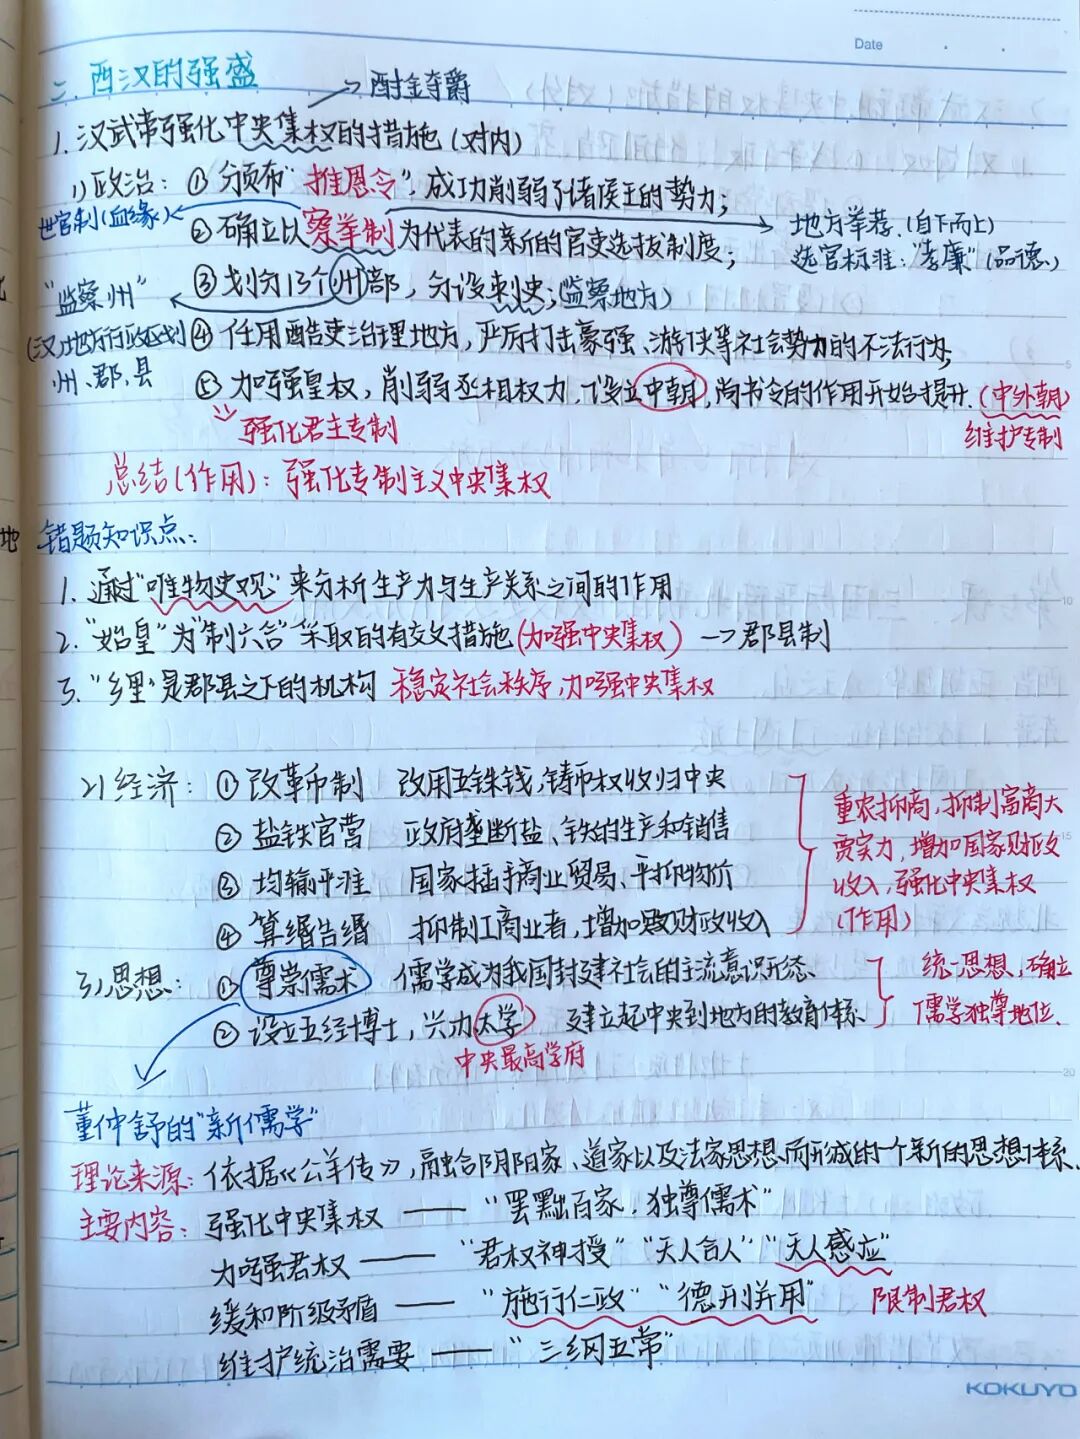 Date
二、西汉的强盛
→酎金夺爵
1. 汉武帝强化中央集权的措施(对内)
1)政治：① 颁布"推恩令"，成功削弱了诸侯王的势力；
世官制(血缘)
② 确立以察举制为代表的新的官吏选拔制度；
地方举荐.(自下而上)
选官标准："孝廉"(品德)
"监察州"
③ 划分13个州部，分设刺史；(监察地方)
(汉)地方行政区划
州、郡、县
④ 任用酷吏治理地方，严厉打击豪强、游侠等社会势力的不法行为；
⑤ 加强皇权，削弱丞相权力，设立中朝，尚书令的作用开始提升.(中外朝)
强化君主专制
维护专制
总结(作用)：强化专制主义中央集权
地
错题知识点：
1. 通过"唯物史观"来分析生产力与生产关系之间的作用
2. "始皇"为"制六合"采取的有效措施(加强中央集权) → 郡县制
3. "乡里"是郡县之下的机构 稳定社会秩序，加强中央集权
2)经济：① 改革币制 改用五铢钱，铸币权收归中央
② 盐铁官营 政府垄断盐、铁的生产和销售
③ 均输平准 国家插手商业贸易、平抑物价
④ 算缗告缗 抑制工商业者，增加财政收入
重农抑商，抑制富商大
贾实力，增加国家财政
收入，强化中央集权
(作用)
3)思想：① 尊崇儒术 儒学成为我国封建社会的主流意识形态.
② 设立五经博士，兴办太学 建立起中央到地方的教育体系.
中央最高学府
统一思想，确立
儒学独尊地位.
董仲舒的"新儒学"
理论来源：依据《公羊传》，融合阴阳家、道家以及法家思想而形成的一个新的思想体系.
主要内容：强化中央集权 —— "罢黜百家，独尊儒术"
加强君权 —— "君权神授""天人合一""天人感应"
缓和阶级矛盾 —— "施行仁政""德刑并用" 限制君权
维护统治需要 —— "三纲五常"
KOKUYO